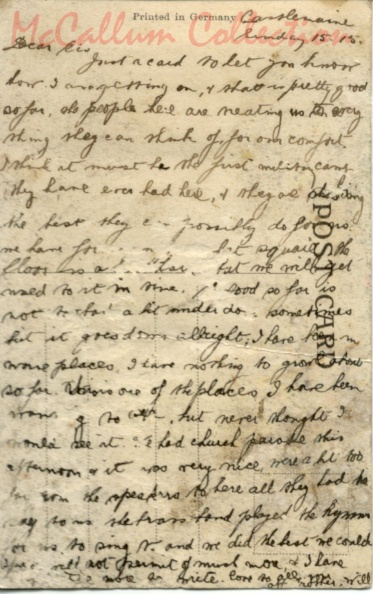 McCallum Collection
Printed in Germany
POST CARD
Castlemaine
Sunday 15.15.
Dear Sis
Just a card to let you know
how I am getting on, & that is pretty good
so far, the people here are treating us to every
thing they can think of, for our comfort
I think it must be the first military camp
they have ever had here, & they are doing
the best they can possibly do for us
we have for squaid, the
floor is a but we will get
used to it in time. Food so far is
not to bad a bit underdo. sometimes
but it goes down allright, I have been in
worse places, I have nothing to growl about
so far. This is one of the places I have been
wanting to see, but never thought I
would see it. We had church parade this
afternoon & it was very nice, were a bit too
far from the speakers to hear all they had to
say to us the brass band played the hymns
for us to sing to. and we did the best we could
Space will not permit of much more, & I have
no more to write. Love to all from
Brother, Will